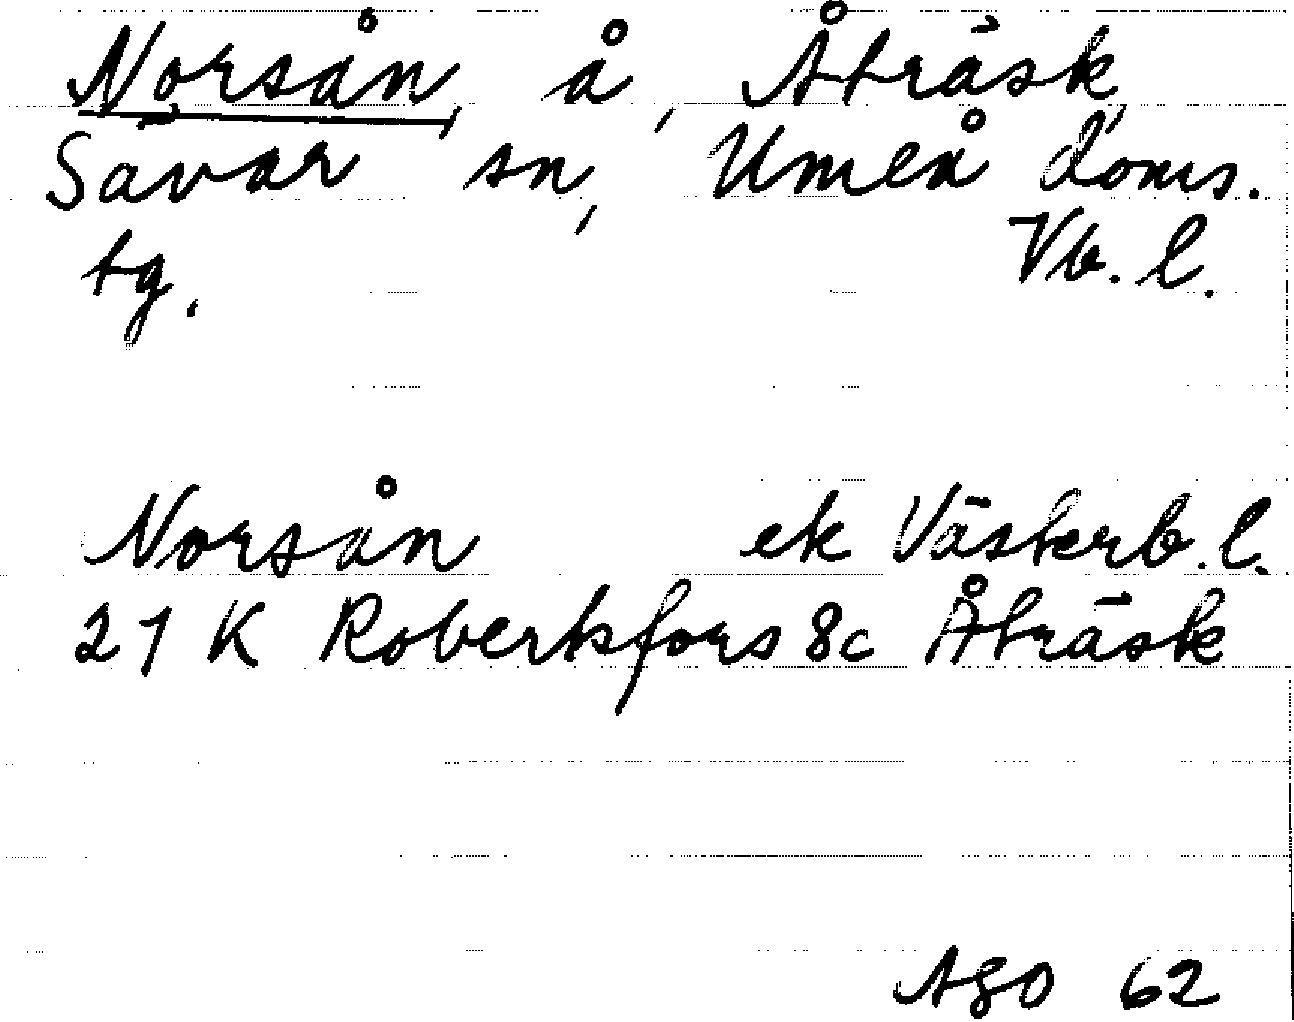 Norsån, å, Åträsk,
Sävar sn, Umeå doms.
tg. Vb. l.
Norsån ek Västerb. l.
21 K Robertsfors 8c Åträsk
AGO 62